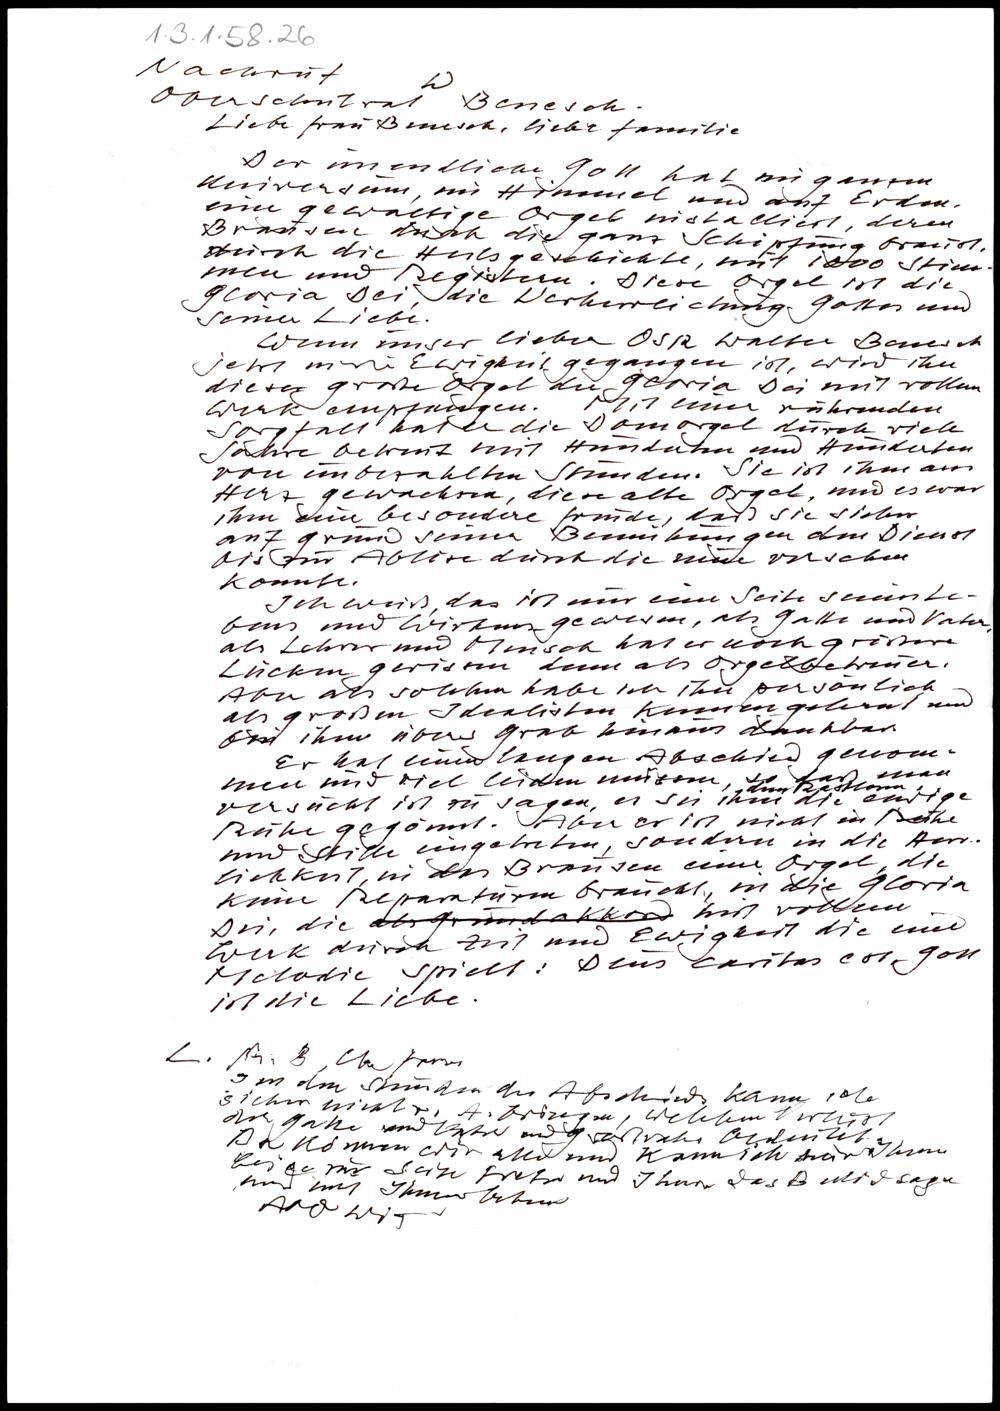 1.3.1.58.26
Nachruf
Oberschulrat W Benesch.
Liebe Frau Benesch, liebe Familie
Der unendliche Gott hat im ganzen
Universum, im Himmel und auf Erden,
eine gewaltige Orgel installiert, deren
Brausen durch die ganze Schöpfung braust,
durch die Heilsgeschichte, mit 1000 Stim-
men und Registern. Diese Orgel ist die
Gloria Dei, die Verherrlichung Gottes und
seiner Liebe.
Wenn unser lieber OSR Walter Benesch
jetzt in die Ewigkeit gegangen ist, wird ihn
diese große Orgel der Gloria Dei mit vollem
Werk empfangen. Mit einer rührenden
Sorgfalt hat er die Domorgel durch viele
Jahre betreut mit Hunderten und Hunderten
von unbezahlten Stunden. Sie ist ihm ans
Herz gewachsen, diese alte Orgel, und es war
ihm eine besondere Freude, daß sie sicher
auf Grund seiner Bemühungen den Dienst
bis zur Ablöse durch die neue versehen
konnte.
Ich weiß, das ist nur eine Seite seines Le-
bens und Wirkens gewesen, als Gatte und Vater,
als Lehrer und Mensch hat er noch größere
Lücken gerissen denn als Orgelbetreuer.
Aber als solchen habe ich ihn persönlich
als großen Idealisten kennengelernt und
bin ihm übers Grab hinaus dankbar.
Er hat einen langen Abschied genom-
men und viel leiden müssen, so daß man
versucht ist zu sagen, es sei ihm die ewige
Ruhe gegönnt. Aber er ist nicht in Ruhe
und Stille eingetreten, sondern in die Herr-
lichkeit, in das Brausen einer Orgel, die
keine Reparaturen braucht, in die Gloria
Dei, die als Grundakkord mit vollem
Werk durch Zeit und Ewigkeit die eine
Melodie spielt: Deus caritas est, Gott
ist die Liebe.
L. Fr. B,
In den Stunden des Abschieds kann ich
sicher nicht
der Gatte und Vater und
Da können wir alle und kann ich nur Ihnen
zur Seite treten und Ihnen das Beileid sagen
und mit Ihnen beten